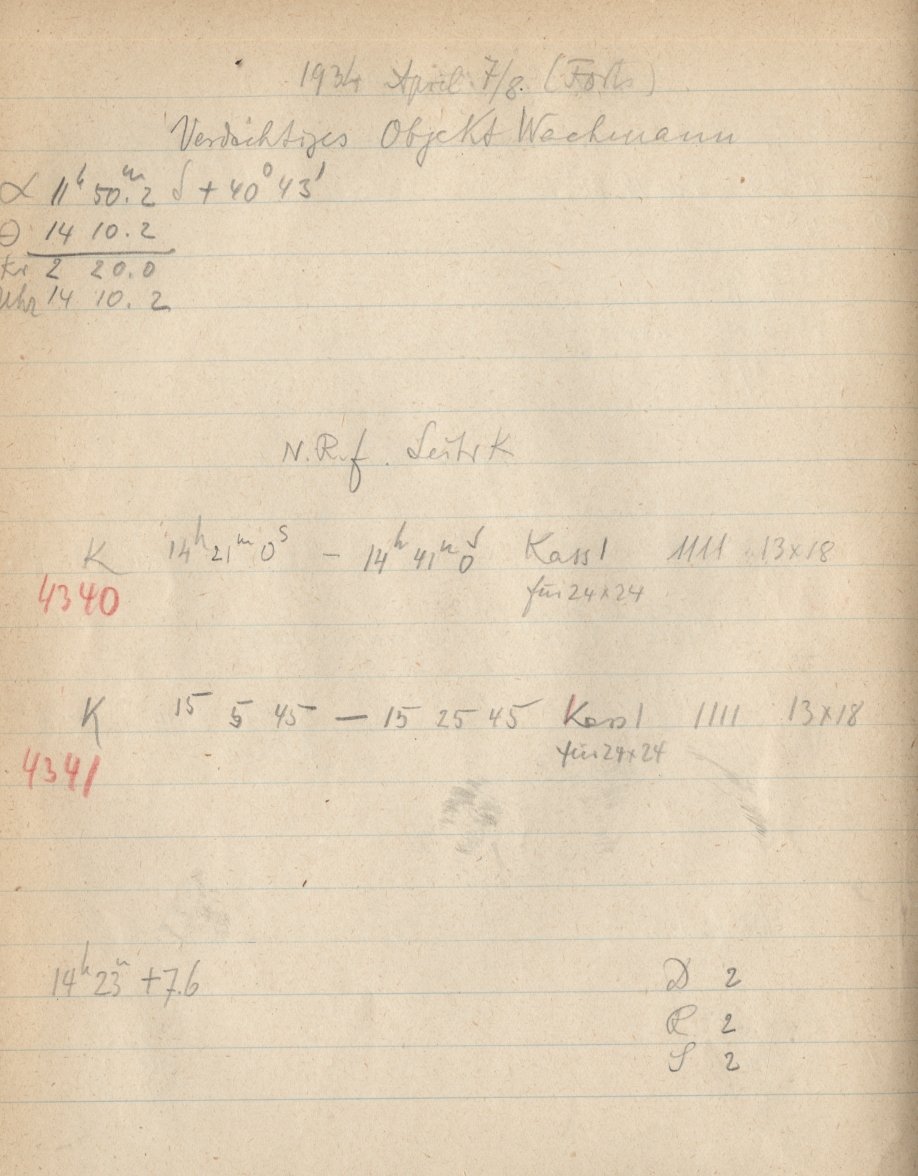 1934 April 7/8. (Forts)
Verdächtiges Objekt Wachmann
α 11h 50m.2 δ +40° 43'
θ 14 10.2
2 20.0
Uhr 14 10.2
N. Rf.
K 14h 21m 0s – 14h 41m 0s Kass 1 1111 13x18
4340 für 24x24
K 15 5 45 – 15 25 45 Kass 1 1111 13x18
4341 für 24x24
14h 23m +7.6 D 2
R 2
S 2